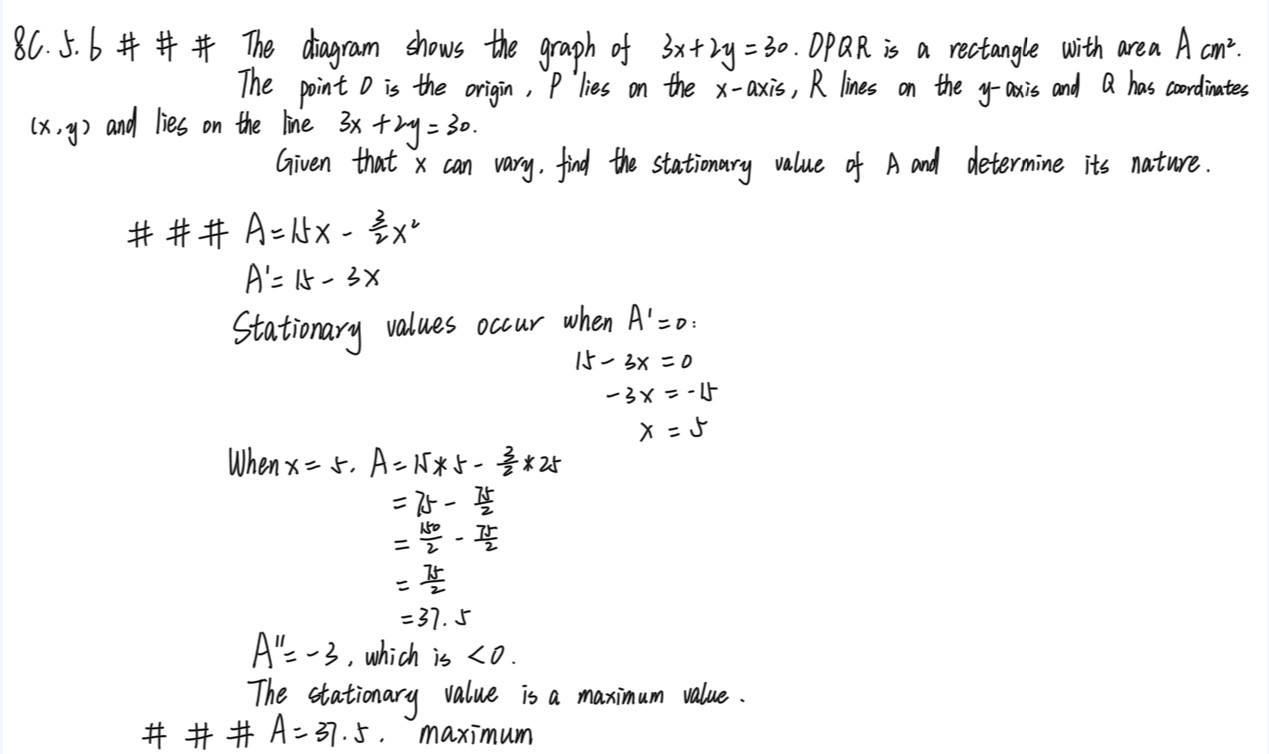 8C.5.b # # # The diagram shows the graph of 3x+2y=30. OPQR is a rectangle with area A cm².
The point O is the origin, P lies on the x-axis, R lines on the y-axis and Q has coordinates
(x,y) and lies on the line 3x+2y=30.
Given that x can vary, find the stationary value of A and determine its nature.
# # # A=15x - 3/2 x²
A'=15-3x
Stationary values occur when A'=0:
15-3x=0
-3x=-15
x=5
When x=5, A=15*5-3/2*25
=75-75/2
=150/2-75/2
=75/2
=37.5
A''=-3, which is <0.
The stationary value is a maximum value.
# # # A=37.5, maximum